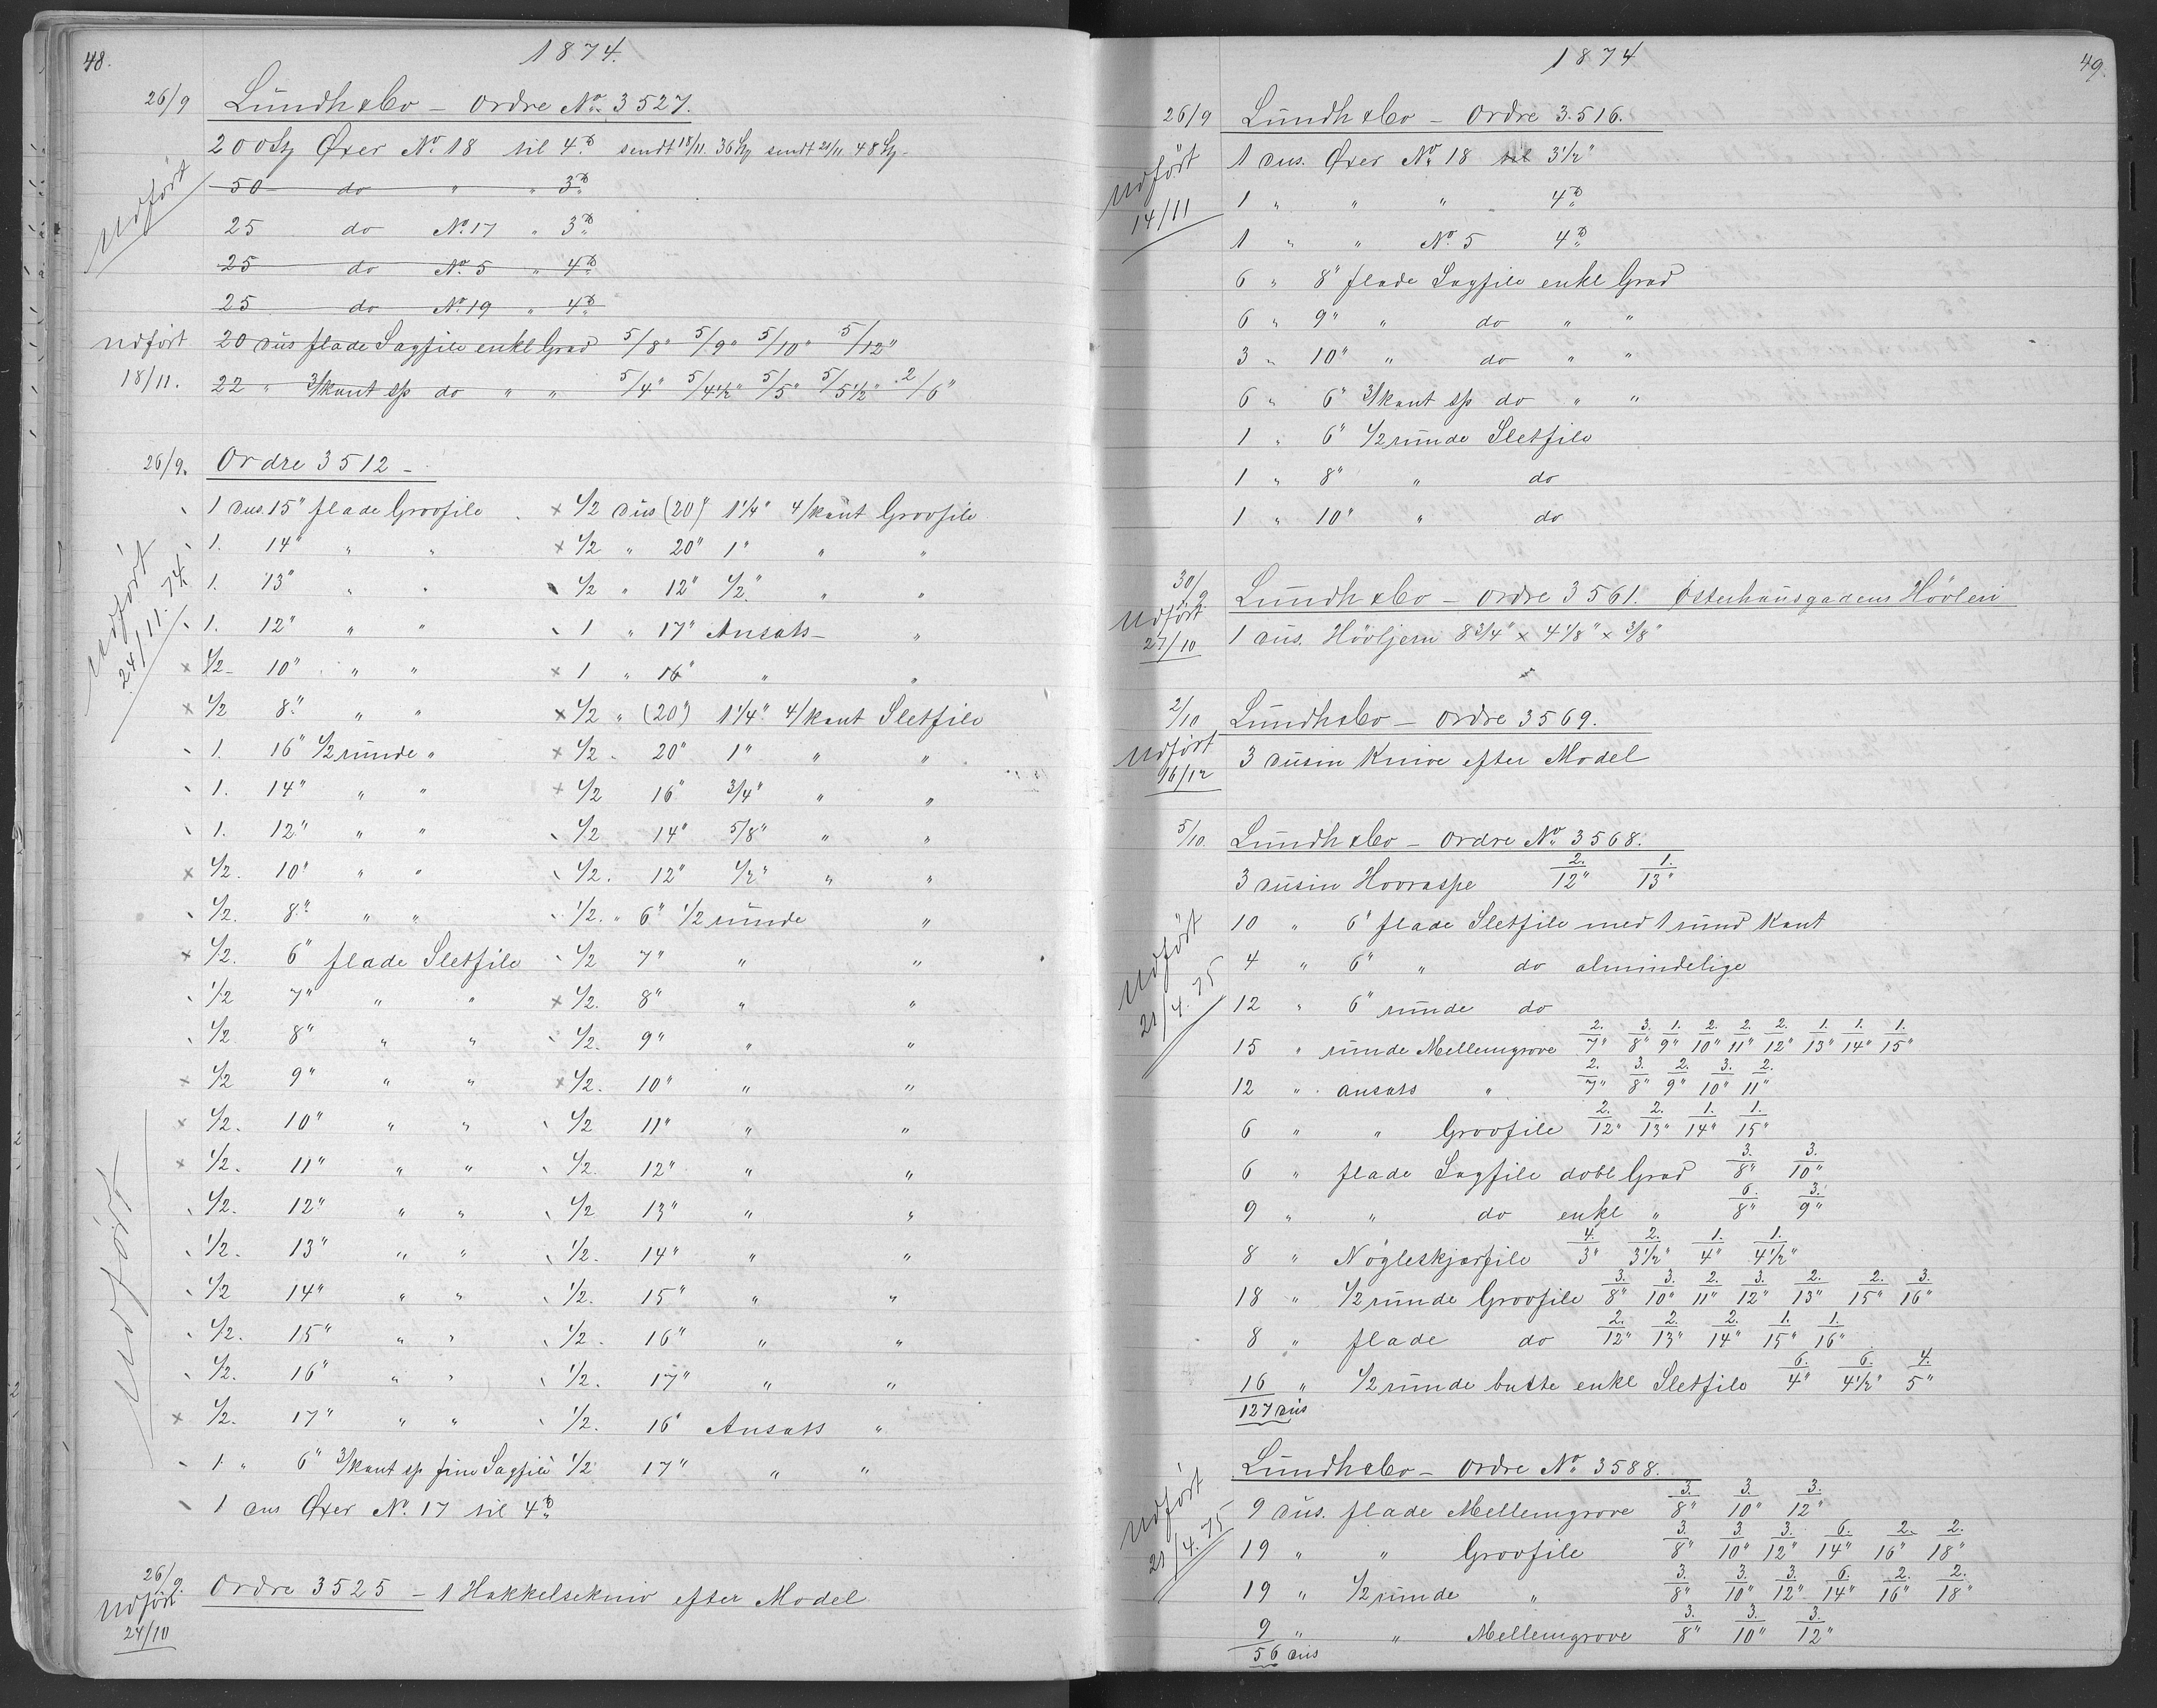 48.
1874.
26/9 Lundh & Co – Ordre No. 3527.
200 St Øxer No. 18 til 4. sendt 18/11. 36 St sendt 21/11 48 St
Udført
50 do " " 3
25 do No. 17 " 3
25 do No. 5 " 4
25 do No. 19 " 4
Udført 20 dus flade Sagfile enkl Grad 5/8" 5/9" 5/10" 5/12"
18/11. 22 " 3/kant sp do " " 5/4" 5/4½" 5/5" 5/5½" 2/6"
26/9. Ordre 3512 –
1 dus. 15" flade Grovfile × ½ dus (20") 1¼" 4/kant Grovfile
1. 14" " " × ½ " 20" 1" " "
Udført 24/11.74.
1. 13" " " ½ " 12" ½" " "
1. 12" " " 1 " 17" Ansats "
× ½ 10" " " × 1 " 16" " "
× ½ 8" " " × ½ " (20") 1¼" 4/kant Sletfile
1. 16" ½ runde " × ½ " 20" 1" " "
1. 14" " " × ½ 16" ¾" " "
1. 12" " " ½ 14" 5/8" " "
× ½. 10" " " ½. 12" ½" " "
½. 8" " " ½. " 6" ½ runde "
× ½. 6" flade Sletfile ½ 7" " "
½ 7" " " × ½. 8" " "
½ 8" " " ½. 9" " "
× ½ 9" " " × ½. 10" " "
× ½. 10" " " ½ 11" " "
× ½. 11" " " ½. 12" " "
½. 12" " " ½ 13" " "
½. 13" " " ½. 14" " "
Udført
½ 14" " " ½. 15" " "
½. 15" " " ½. 16" " "
½. 16" " " ½. 17" " "
× ½. 17" " " ½. 16" Ansats "
1 " 6" 3/kant sp fine Sagfile ½ 17" " "
1 dus Øxer No. 17 til 4
26/9. Ordre 3525 – 1 Hakkelsekniv efter Model
Udført
24/10
1874
49.
26/9 Lundh & Co – Ordre 3516.
1 dus. Øxer No. 18 til 3½"
Udført
1 " " " 4
14/11
1 " " No. 5 4
6 " 8" flade Sagfile enkl Grad
6 " 9" " do " "
3 " 10" " do " "
6 " 6" 3/kant sp do " "
1 " 6" ½ runde Sletfile
1 " 8" " do
1 " 10" " do
30/9. Lundh & Co – Ordre 3561. Østerhausgadens Høvleri
Udført
27/10 1 dus. Høvljern 8¾" × 4⅛" × ⅜"
2/10 Lundh & Co – Ordre 3569.
Udført
16/12 3 dusin Knive efter Model
5/10. Lundh & Co – Ordre No. 3568.
3 dusin Hovraspe 2./12" 1./13"
10 " 6" flade Sletfile med 1 rund Kant
Udført 21/4.75
4 " 6" " do almindelige
12 " 6" runde do
15 " runde Mellemgrove 2./7" 3./8" 1./9" 2./10" 2./11" 2./12" 1./13" 1./14" 1./15"
12 " ansats " 2./7" 3./8" 2./9" 3./10" 2./11"
6 " " Grovfile 2./12" 2./13" 1./14" 1./15"
6 " flade Sagfile dobl Grad 3./8" 3./10"
9 " " do enkl " 6./8" 3./9"
8 " Nøgleskjærfile 4./3" 2./3½" 1./4" 1./4½"
18 " ½ runde Grovfile 3./8" 3./10" 2./11" 3./12" 2./13" 2./15" 3./16"
8 " flade do 2./12" 2./13" 2./14" 1./15" 1./16"
16 " ½ runde butte enkl Sletfile 6./4" 6./4½" 4./5"
127 dus
Lundh & Co – Ordre No. 3588.
9 dus. flade Mellemgrove 3./8" 3./10" 3./12"
Udført 21/4.75
19 " " Grovfile 3./8" 3./10" 3./12" 6./14" 2./16" 2./18"
19 " ½ runde " 3./8" 3./10" 3./12" 6./14" 2./16" 2./18"
9 " " Mellemgrove 3./8" 3./10" 3./12"
56 dus